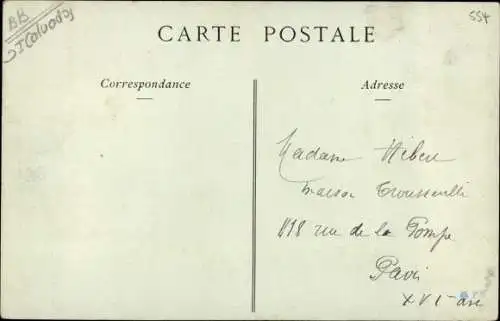 BB
J Calvados
554
CARTE POSTALE
Correspondance
Adresse
Madame
Maison Trousseville
118 rue de la Pompe
Paris
XVI